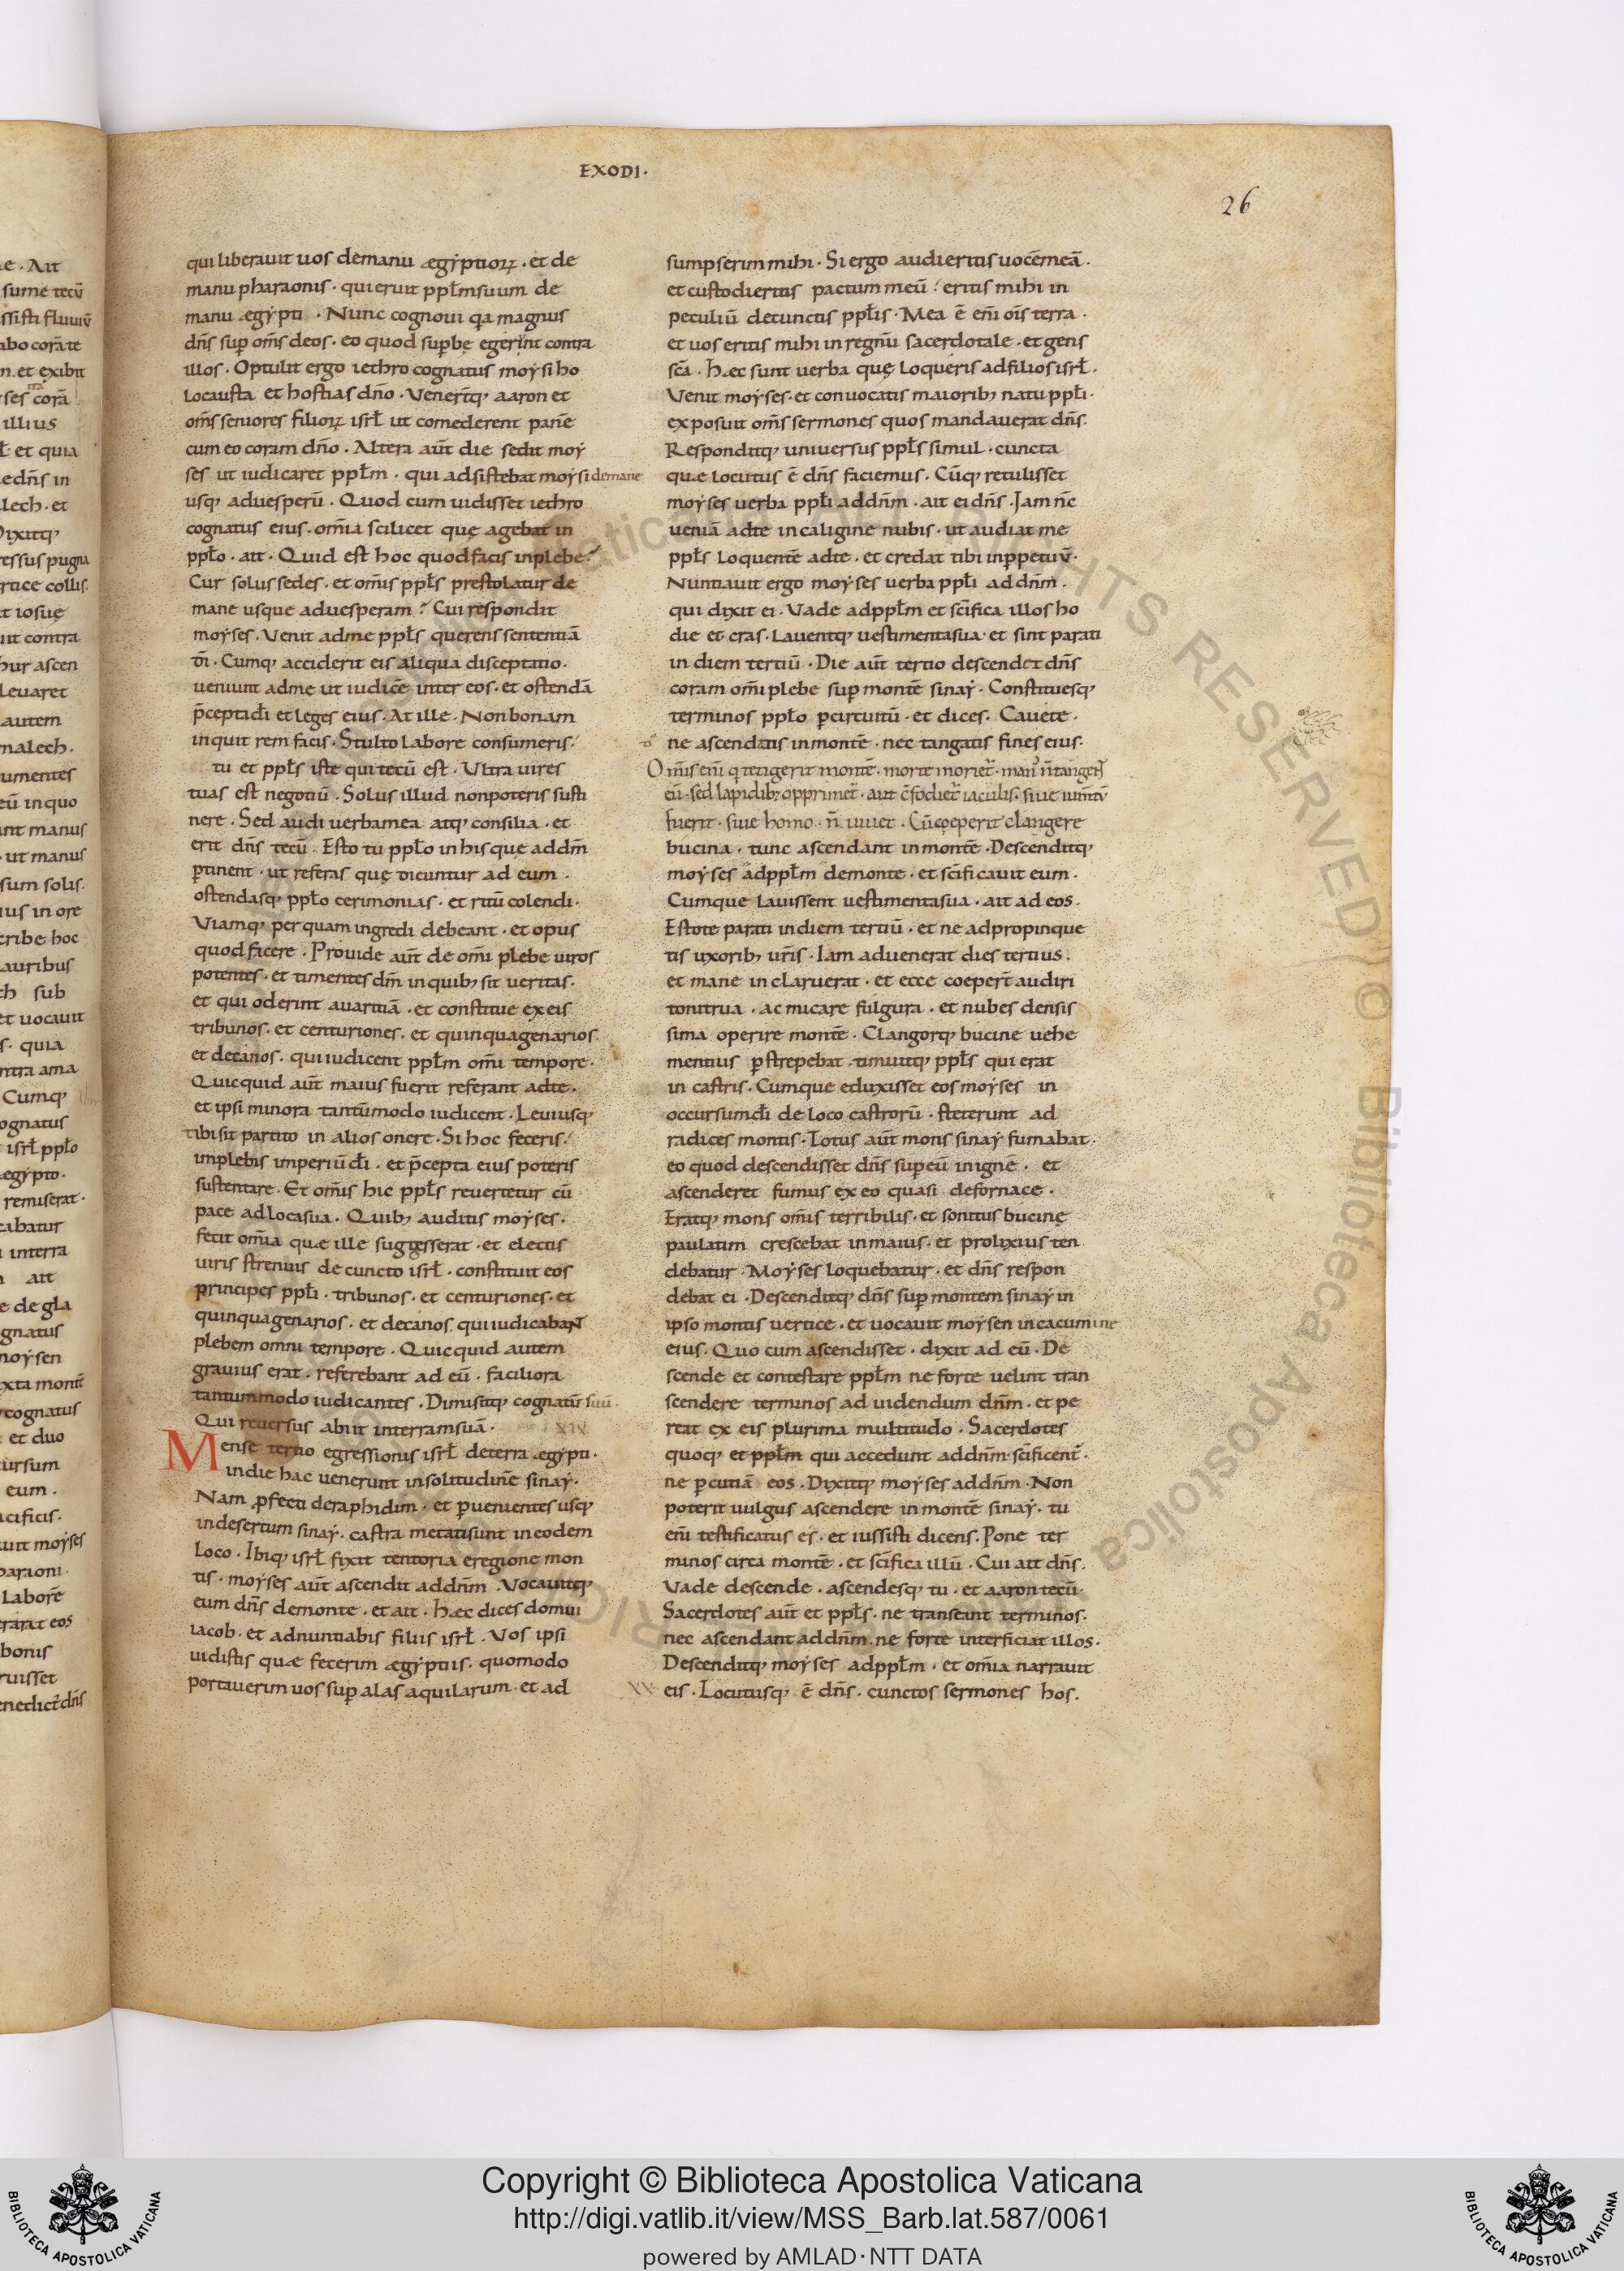 EXODI·
26
qui liberauit uos demanu ægẏptioꝝ · et de
manu pharaonis · qui eruit ppłm suum de
manu ægẏpti · Nunc cognoui qa magnus
dn̄s sup om̄s deos · eo quod supbę egerint contra
illos · Optulit ergo iethro cognatus moẏsi ho
locausta et hostias dn̄o · Venert̄q; aaron et
om̄s seniores filioꝝ isrł ut comederent pane̅
cum eo coram dn̄o · Altera aut̄ die sedit moẏ
ses ut iudicaret ppłm · qui adsistebat moẏsi demane
usq; aduesperū · Quod cum uidisset iethro
cognatus eius · om̄ia scilicet quę agebat in
ppło · ait · Quid est hoc quod facis inplebe?
Cur solus sedes · et om̄is ppłs prestolatur de
mane usque aduesperam? Cui respondit
moẏses · Venit adme ppłs querens sententiā
dī · Cumq; acciderit eis aliqua disceptatio·
ueniunt adme ut iudicē inter eos · et ostendā
p̄cepta dī et leges eius · At ille · Non bonam
inquit rem facis · Stulto labore consumeris·
tu et ppłs iste qui tecū est · Ultra uires
tuas est negotiū · Solus illud nonpoteris susti
nere · Sed audi uerbamea atq; consilia · et
erit dn̄s tecū · Esto tu ppło in his quę addm̄
ꝑtinent · ut referas quę dicuntur ad eum ·
ostendasq; ppło cerimonias · et ritū colendi·
Viamq; per quam ingredi debeant · et opus
quod facere · Prouide aut̄ de om̄i plebe uiros
potentes · et timentes dm̄ in quib; sit ueritas·
et qui oderint auaritiā · et constitue ex eis
tribunos · et centuriones · et quinquagenarios
et decanos · qui iudicent ppłm om̄i tempore·
Quicquid aut̄ maius fuerit referant adte ·
et ipsi minora tantūmodo iudicent · Leuiusq;
tibi sit partito in alios onere · Si hoc feceris·
implebis imperiū dī · et p̄cepta eius poteris
sustentare · Et om̄is hic ppłs reuertetur cū
pace adlocasua · Quib; auditis moẏses ·
fecit om̄ia quæ ille suggesserat · et electis
uiris strenuis de cuncto isrł · constituit eos
principes ppłi · tribunos · et centuriones · et
quinquagenarios · et decanos qui iudicabant
plebem omni tempore · Quicquid autem
grauius erat · referebant ad eū · faciliora
tantummodo iudicantes · Dimisitq; cognatū suū ·
Qui reuersus abiit interramsuā · XIX
Mense tertio egressionis isrł deterra ægẏpti·
in die hac uenerunt insolitudinē sinaẏ·
Nam ꝓfecti deraphidim · et ꝑuenientes usq;
indesertum sinaẏ · castra metatisunt in eodem
loco · Ibiq; isrł fixit tentoria eregione mon
tis · moẏses aut̄ ascendit addn̄m · Vocauitq;
eum dn̄s demonte · et ait · Hæc dices domui
iacob · et adnuntiabis filiis isrł · Vos ipsi
uidistis quæ fecerim ægẏptiis · quomodo
portauerim uos sup alas aquilarum · et ad
sumpserim mihi · Si ergo audieritis uocēmeā ·
et custodieritis pactum meū : eritis mihi in
peculiū decunctis ppłis · Mea ē eni̅ oīs terra ·
et uos eritis mihi in regnū sacerdotale · et gens
sc̄a · Hæc sunt uerba quę loqueris adfilios isrł ·
Venit moẏses · et conuocatis maiorib; natu ppłi·
exposuit om̄s sermones quos mandauerat dn̄s·
Responditq; uniuersus ppłs simul · cuncta
quæ locutus ē dn̄s faciemus · Cūq; retulisset
moẏses uerba ppłi addn̄m · ait ei dn̄s · Iam nc̄
ueniā adte in caligine nubis · ut audiat me
ppłs loquentē adte · et credat tibi inppetuū·
Nuntiauit ergo moẏses uerba ppłi addn̄m ·
qui dixit ei · Vade adppłm et sc̄ifica illos ho
die et cras · Lauentq; uestimentasua · et sint parati
in diem tertiū · Die aut̄ tertio descendet dn̄s
coram om̄i plebe sup montē sinaẏ · Constituesq;
terminos ppło ꝑcircuitū · et dices · Cauete ·
ne ascendatis inmontē · nec tangatis fines eius·
Om̄is eni̅ q tetigerit montē · morte moriet̄ · man' n̄ tanget
eū · sed lapidib; opprimet̄ · aut c̄fodiet̄ iaculis · siue iumtū
fuerit · siue homo · n̄ uiuet · Cū coeperit clangere
bucina · tunc ascendant inmontē · Descenditq;
moẏses adppłm demonte · et sc̄ificauit eum ·
Cumque lauissent uestimentasua · ait ad eos ·
Estote parati indiem tertiū · et ne adpropinque
tis uxorib; ur̄is · Iam aduenerat dies tertius ·
et mane inclaruerat · et ecce coeper̄t audiri
tonitrua · ac micare fulgura · et nubes densis
sima operire montē · Clangorq; bucine uehe
mentius ꝑstrepebat · timuitq; ppłs qui erat
in castris · Cumque eduxisset eos moẏses in
occursum dī de loco castrorū · steterunt ad
radices montis · Totus aut̄ mons sinaẏ fumabat ·
eo quod descendisset dn̄s sup eū in igne · et
ascenderet fumus ex eo quasi defornace ·
Eratq; mons om̄is terribilis · et sonitus bucinę
paulatim crescebat inmaius · et prolixius ten
debatur · Moẏses loquebatur · et dn̄s respon
debat ei · Descenditq; dn̄s sup montem sinaẏ in
ipso montis uertice · et uocauit moẏsen in cacumine
eius · Quo cum ascendisset · dixit ad eū · De
scende et contestare ppłm ne forte uelint tran
scendere terminos ad uidendum dn̄m · et pe
reat ex eis plurima multitudo · Sacerdotes
quoq; et ppłm qui accedunt addn̄m · sc̄ificent̄ ·
ne ꝑcutiā eos · Dixitq; moẏses addn̄m · Non
poterit uulgus ascendere in montē sinaẏ · tu
eni̅ testificatus es · et iussisti dicens · Pone ter
minos circa montē · et sc̄ifica illū · Cui ait dn̄s ·
Vade descende · ascendesq; tu · et aaron tecū·
Sacerdotes aut̄ et ppłs · ne transeant terminos ·
nec ascendant addn̄m · ne forte interficiat illos ·
Descenditq; moẏses adppłm · et om̄ia narrauit
XX eis · Locutusq; ē dn̄s · cunctos sermones hos ·
Copyright © Biblioteca Apostolica Vaticana
http://digi.vatlib.it/view/MSS_Barb.lat.587/0061
powered by AMLAD·NTT DATA
BIBLIOTECA APOSTOLICA VATICANA
BIBLIOTECA APOSTOLICA VATICANA